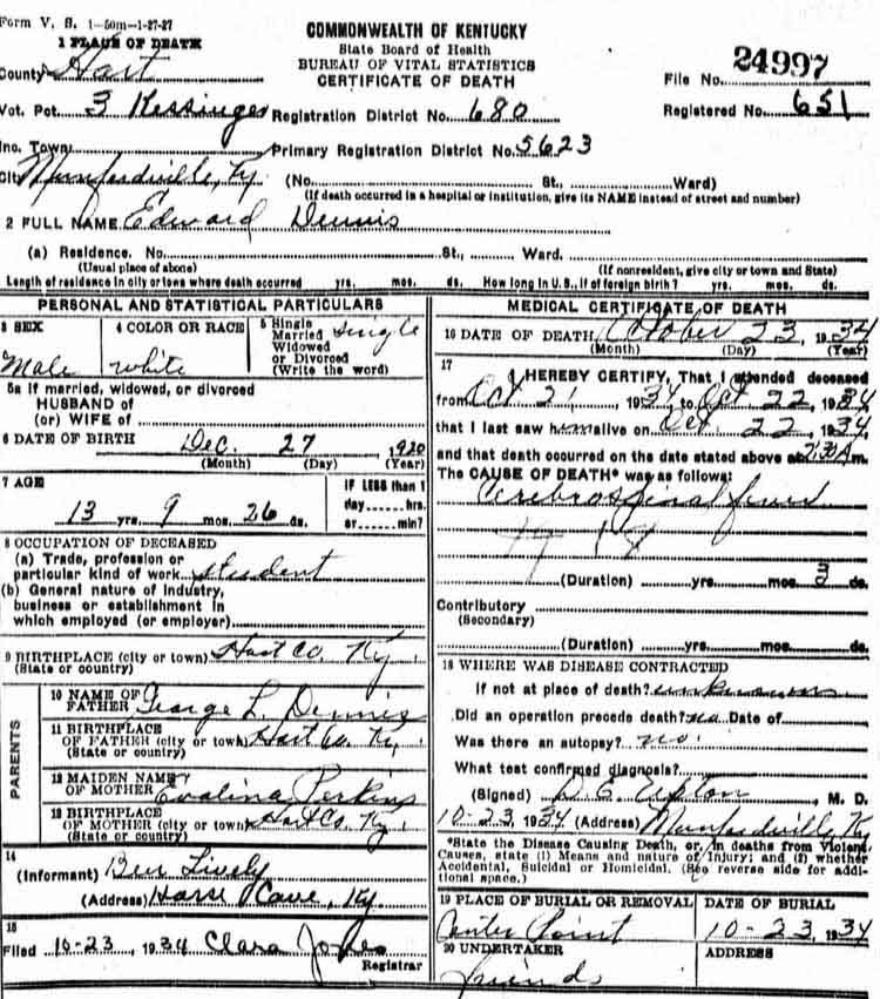 Form V. S. 1-50m-1-27-27
COMMONWEALTH OF KENTUCKY
State Board of Health
BUREAU OF VITAL STATISTICS
CERTIFICATE OF DEATH
1 PLACE OF DEATH
County Hart
File No. 24997
Vot. Pct. 3 Kessinger Registration District No. 680 Registered No. 651
Inc. Town Primary Registration District No. 5623
City Munfordville, Ky. (No. St., Ward)
(If death occurred in a hospital or institution, give its NAME instead of street and number)
2 FULL NAME Edward Dennis
(a) Residence. No. St., Ward.
(Usual place of abode) (If nonresident, give city or town and State)
Length of residence in city or town where death occurred yrs. mos. ds. How long in U. S., if of foreign birth? yrs. mos. ds.
PERSONAL AND STATISTICAL PARTICULARS
3 SEX Male
4 COLOR OR RACE white
5 Single
Married
Widowed
or Divorced
(Write the word) single
5a If married, widowed, or divorced
HUSBAND of
(or) WIFE of
6 DATE OF BIRTH Dec. 27, 1920
(Month) (Day) (Year)
7 AGE
13 yrs. 9 mos. 26 ds.
IF LESS than 1
day hrs.
or min?
8 OCCUPATION OF DECEASED
(a) Trade, profession or
particular kind of work student
(b) General nature of industry,
business or establishment in
which employed (or employer)
9 BIRTHPLACE (city or town) Hart Co. Ky.
(State or country)
PARENTS
10 NAME OF
FATHER George L. Dennis
11 BIRTHPLACE
OF FATHER (city or town) Hart Co. Ky.
(State or country)
12 MAIDEN NAME
OF MOTHER Evalina Perkins
13 BIRTHPLACE
OF MOTHER (city or town) Hart Co. Ky.
(State or country)
14
(Informant) Ben Lively
(Address) Horse Cave, Ky.
15
Filed 10-23, 1934 Clara Jones
Registrar
MEDICAL CERTIFICATE OF DEATH
16 DATE OF DEATH October 23, 1934
(Month) (Day) (Year)
17
I HEREBY CERTIFY, That I attended deceased
from Oct 21, 1934, to Oct. 22, 1934
that I last saw him alive on Oct. 22, 1934,
and that death occurred on the date stated above at 2:30 A m.
The CAUSE OF DEATH* was as follows:
Cerebrospinal fever
(Duration) yrs. mos. 3 ds.
Contributory
(Secondary)
(Duration) yrs. mos. ds.
18 WHERE WAS DISEASE CONTRACTED
If not at place of death? unknown
Did an operation precede death? no Date of
Was there an autopsy? no.
What test confirmed diagnosis?
(Signed) Upton, M. D.
10-23, 1934 (Address) Munfordville, Ky
*State the Disease Causing Death, or, in deaths from Violent
Causes, state (1) Means and nature of Injury; and (2) whether
Accidental, Suicidal or Homicidal. (See reverse side for addi-
tional space.)
19 PLACE OF BURIAL OR REMOVAL
Center Point
DATE OF BURIAL
10-23, 1934
20 UNDERTAKER
friends
ADDRESS